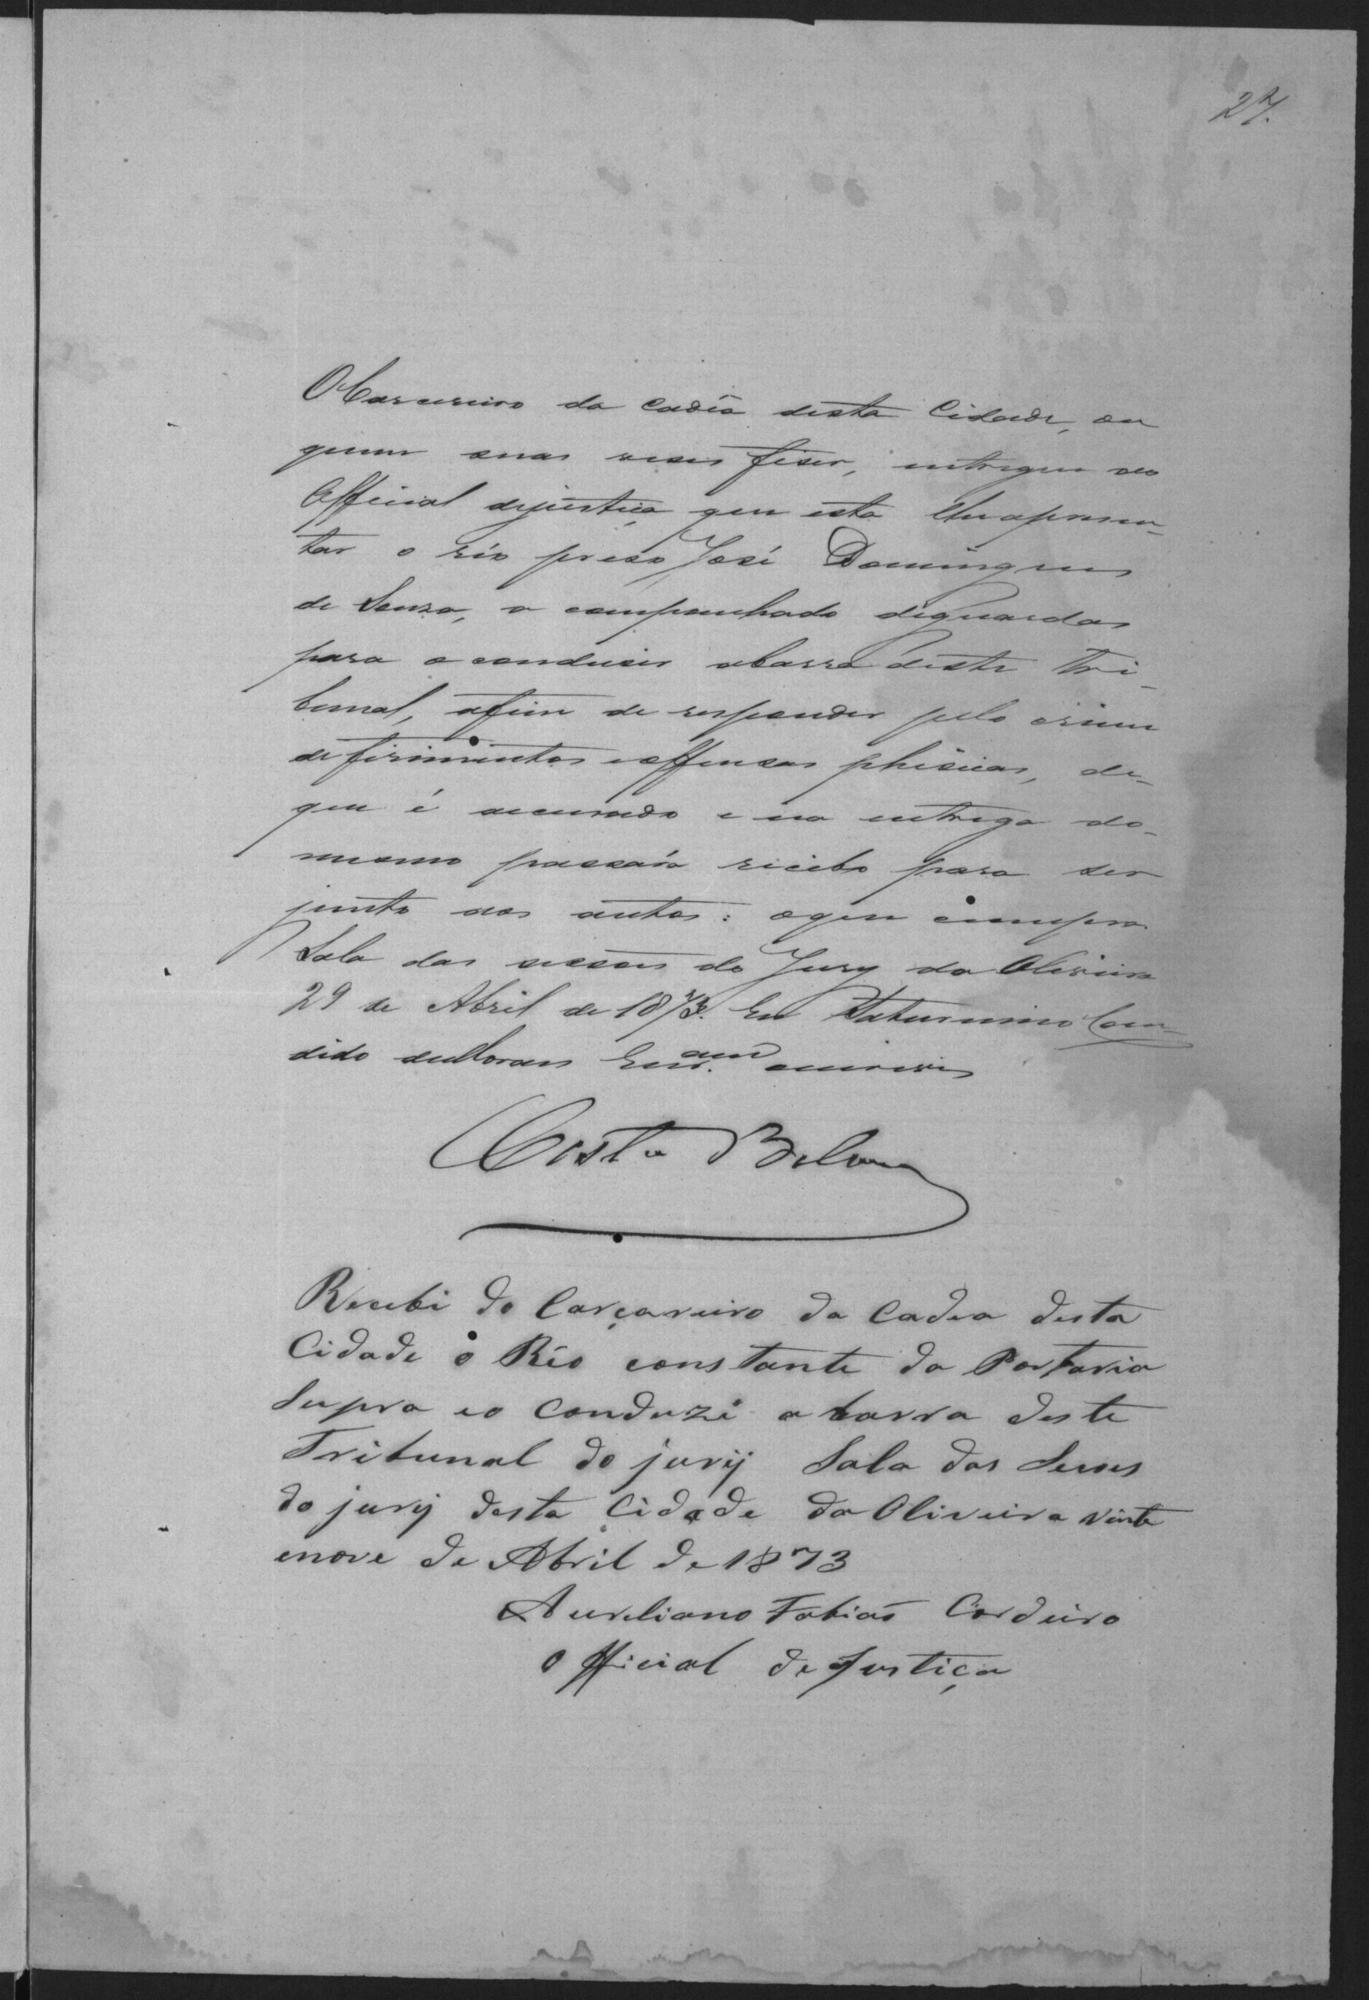 27.
O Carcereiro da Cadêa desta Cidade, ou
quem suas veses fiser, entregue ao
Official dejustiça que esta lhe apresen-
tar o réo preso José Domingues
de Souza, a companhado deguardas
para o condusir abarra deste Tri-
bunal, afim de responder pelo crime
de firimentos e offensas phisicas, de-
que é accusado e na entrega do-
mesmo passará recibo para ser
junto aos autos: oque cumpra
Sala das sessões do Jury da Oliveira
29 de Abril de 1873. Eu Saturnino Can
dido de Moraes Escr.am oescrevi
Costa
Recebi do Carçareiro da Cadea desta
Cidade o Réo constante da Portaria
Supra eo Conduzi a barra deste
Tribunal do jurij Sala das
do jurij desta Cidade da Oliveira vinte
enove de Abril de 1873
Aureliano Fabiaõ Cordeiro
Official de Justiça